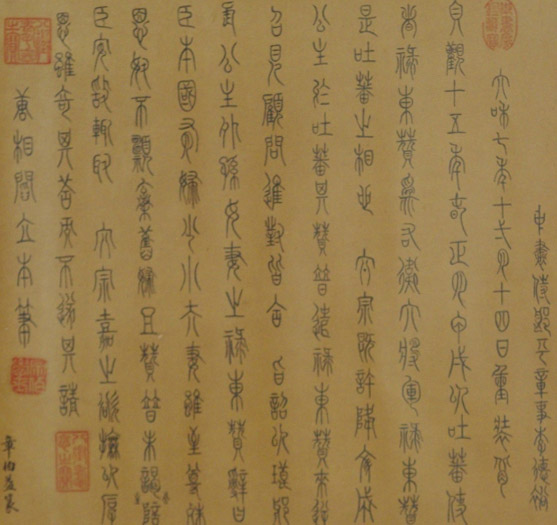 中書侍郎平章事李德裕
太和七年十弌月十四日重裝背
貞觀十五年春正月甲戌以吐蕃使
者祿東贊為右衛大將軍祿東贊
是吐蕃之相也 太宗既許降文成
公主於吐蕃其贊普遣祿東贊來逆
召見顧問進對皆合 旨詔以琅邪
長公主外孫女妻之祿東贊辭曰
臣本國有婦少小夫妻雖至尊殊
恩奴不願棄舊婦且贊普未謁公主陪
臣安敢輒取 太宗嘉之欲撫以厚
恩雖奇其答而不遂其請
唐相閻立本筆
章伯益篆